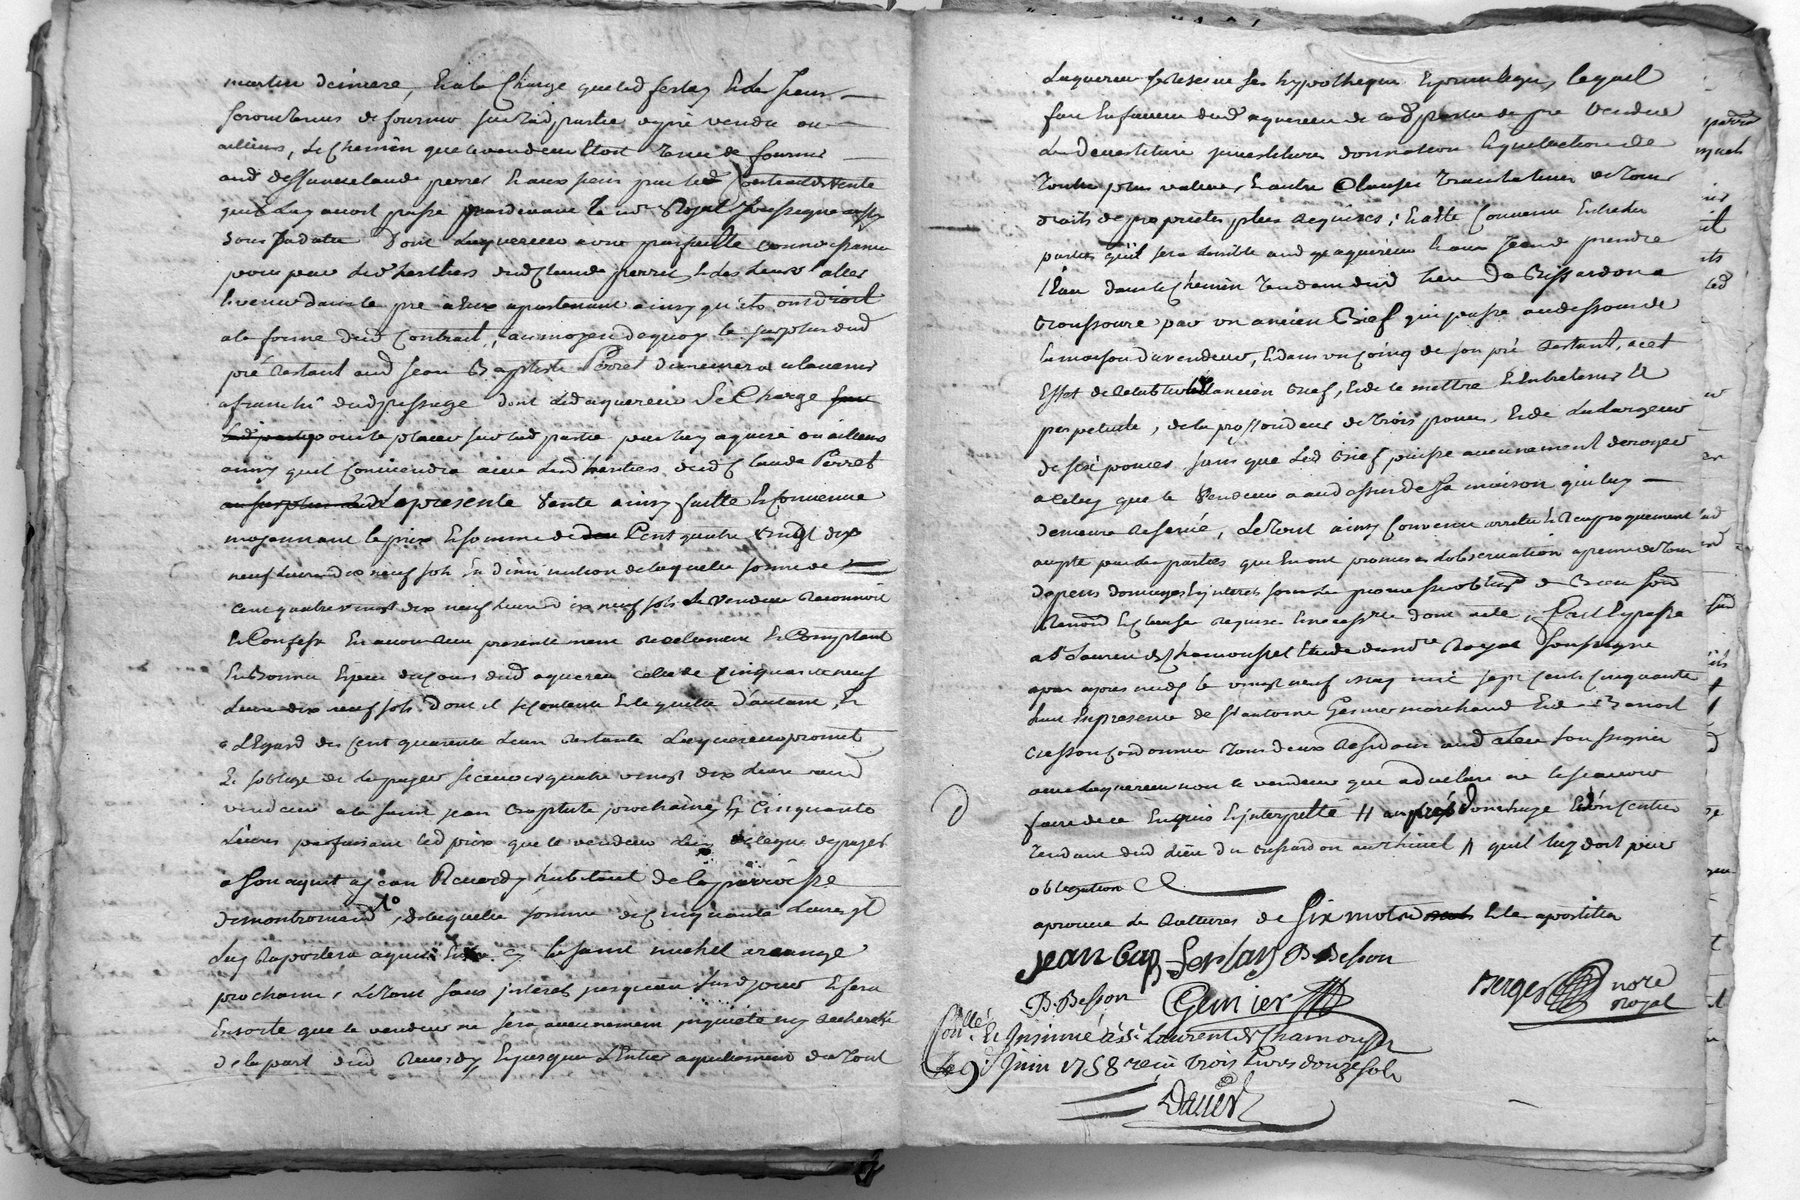 martin derniere, Et a la Charge que led ferlay Et les siens
seront tenus de fournir sur lad partie de pré vendu ou
ailleurs, le Chemin que le vendeur Etoit tenu de fournir
aud deffunt claude perret Et aux siens par led contrat de vente
quil luy auoit passé pardeuant le nre Royal soussigné
sous sa datte dont Lacquereur a une parfaitte connoissance
pour par les heritiers dud Claude perret, Et les Leurs aller
Et venir dans le pré a Eux apartenant ainsy qu'ils ont droit
a la forme dud Contrat, au moyen de quoy le surplus dud
pré Restant aud Jean Baptiste Perret demeurera a lauenir
afranchi dud passage dont led acquereur se Charge
pour le placer sur lad partie par luy aquise ou ailleurs
ainsy quil Conviendra auec lesd heritiers dud Claude Perret
la presente vente ainsy faitte Et Convenue
moyennant le prix Et somme de Cent quatre vingt dix
neuf liures dix neuf sols En diminution de laquelle somme de
cent quatre vingt dix neuf liures dix neuf sols le vendeur Reconnoit
Et Confesse En auoir Receu presentement Reellement Et Comptant
En Bonnes Especes du Cours dud aquereur celle de Cinquante neuf
liures dix neuf sols dont il se contente Et le quitte d'autant, Et
a L'Egard des Cent quarante liures Restante Lacquereur promet
Et s'oblige de la payer sçauoir quatre vingt dix liures aud
vendeur a la saint jean Baptiste prochaine, Et Cinquante
Liures parfaisant led prix que le vendeur luy delegue de payer
a son aquit a jean Reuerdy habitant de la parroisse
de montromand, de laquelle somme de Cinquante Liures Il
luy Raportera aquit a la saint michel archange
prochaine, Le tout sans interets jusques aud jour Et sera
En sorte que le vendeur ne sera aucunement inquieté ny Recherché
de la part dud Reuerdy, Et jusques a L'Entier aquittement du tout
Laquereur se Reserve ses hypotheques Et priuileges, lequel
fait En faueur dud aquereur de lad partie de pré vendue
La deuestiture jnuestiture donnation Et quittation de
toutte plus value, Et autre Clauses translatiues de tous
droits de proprietés plus Requises; Et a Eté Convenu Entre les
parties quil sera loisible aud aquereur Et aux siens de prendre
l'Eau dans le Chemin tendant dud lieu Du Bissardon a
troussoure par un ancien Bief qui passe audessous de
la maison du vendeur, Et dans un coing de son pré Restant, a cet
Effet de Retablir led ancien Bief, Et de le mettre Et Entretenir Et
perpetuité, de la proffondeur de trois pouces Et de La Largeur
de six pouces sans que led Bief puisse aucunement deroger
a celuy que le vendeur a audessus de sa maison qui luy
demeure Reservé, Le tout ainsy Convenu arretté Et Reciproquement
accepté par les parties qui En ont promis a L'observation a peine de tous
depens domages Et jnterets sous les promesses obligé de Bien soûd
Renonc Et Clause Requise Et necesser dont acte, Fait Et passé
a St Laurent de Chamousset Etude du nre Royal soussigné
apar apres midy le vingt neuf may mil sept Cents Cinquante
huit En presence de Sr antoine Genier marchand Et de Sr Benoist
Besson Cordonnier tous deux Residans aud Lieu soussignés
auec Laquereur non le vendeur que a declaré ne le sçauoir
faire de ce Enquis Et jnterpellé
tendant dud Lieu du bissardon au thinel quil luy doit pour
obligation
aprouué les Rattures de Six mots Et la apostille
jean Bap Ferlay B Besson
B. Besson Genier
Berger nore
Royal
Conllé. Et Insinué à St. Laurent de Chamousset
Le 9 Juin 1758 reçu trois livres douze sols